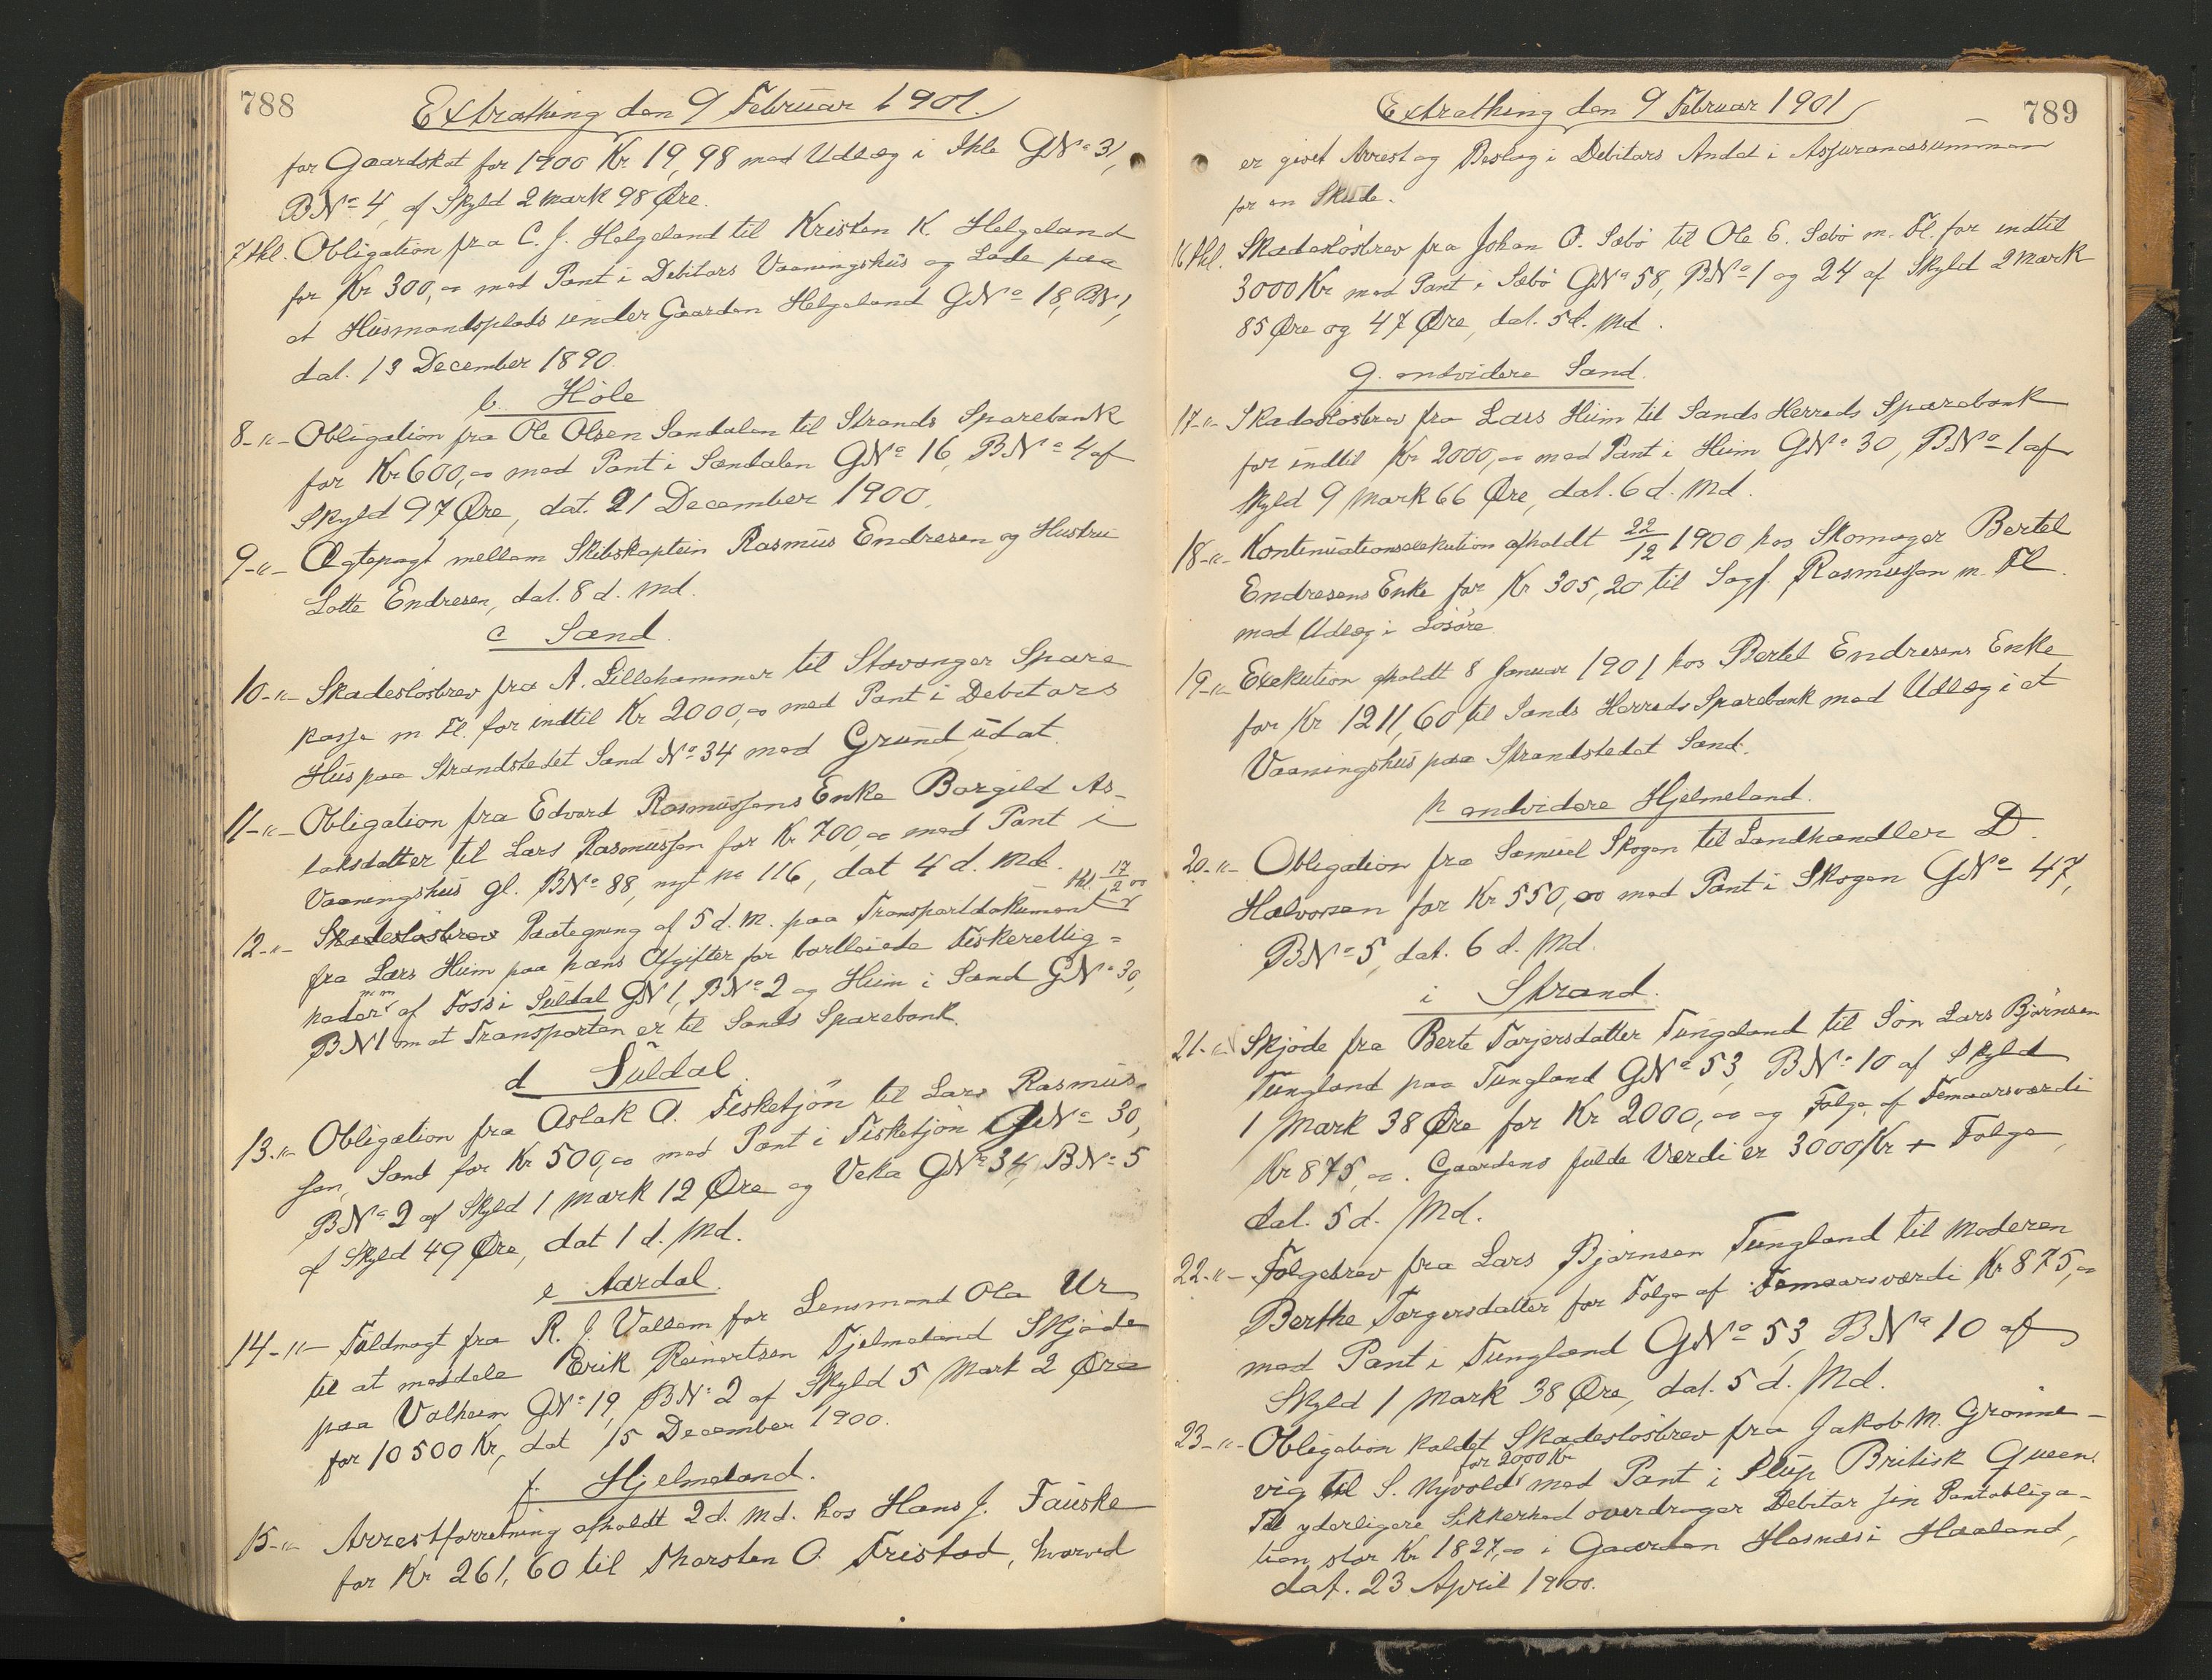 788
Extrathing den 9 Februar 1901.
for Gaardskat for 1900 Kr 19,98 med Udlæg i Ihle GNo 31,
BNo 4, af Skyld 2 mark 98 Øre.
7 thl. Obligation fra C. J. Helgeland til Kristen K. Helgeland
for Kr 300,00 med Pant i Debitors Vaaningshus og Lade paa
et Husmandsplads under Gaarden Helgeland GNo 18, BN 1,
dat. 13 December 1890.
b. Höle
8-"- Obligation fra Ole Olsen Sandalen til Strands Sparebank
for Kr 600,00 med Pant i Sandalen GNo 16, BNo 4 af
Skyld 97 Øre, dat. 21 December 1900.
9-"- Ægtepagt mellem Skibskaptein Rasmus Endresen og Hustru
Lotte Endresen, dat. 8 d. Md.
c Sand.
10-"- Skadeslösbrev fra A. Lillehammer til Stavanger Spare
kasse m Fl. for indtil Kr 2000,00 med Pant i Debitors
Hus paa Strandstedet Sand No 34 med Grund, udat.
11-"- Obligation fra Edvard Rasmussens Enke Borgild As-
laksdatter til Lars Rasmussen for Kr 700,00 med Pant i
Vaaningshus gl. BNo 88, nyt no 116, dat 4 d. Md.
thl 17/2 00
12-"- Skadeslösbrev Paategning af 5 d. M. paa Transportdokument
fra Lars Hiim paa hans Afgifter for bortleiede Fiskerettig=
heder m m af Foss i Suldal GN 1, BNo 2 og Hiim i Sand GNo 30,
BN 1 om at Transporten er til Sands Sparebank.
d Suldal.
13-"- Obligation fra Aslak O. Fisketjön til Lars Rasmus-
sen, Sand for Kr 500,00 med Pant i Fisketjön GNo 30,
BNo 2 af Skyld 1 Mark 12 Øre og Veka GNo 34, BNo 5
af Skyld 49 Øre, dat 1 d. Md.
e Aardal.
14-"- Fuldmagt fra R. J. Valheim for Lensmand Ola Ur
til at meddele Erik Reinertsen Fjelmeland Skjöde
paa Valheim GNo 19, BNo 2 af Skyld 5 Mark 2 Øre
for 10500 Kr, dat 15 December 1900.
f. Hjelmeland.
15-"- Arrestforretning afholdt 2 d. Md. hos Hans J. Fauske
for Kr 261,60 til Thorsten O. Tristad, hvorved
789
Extrathing den 9 Februar 1901
er givet Arrest og Beslag i Debitors Andel i Assurancesummen
for en Skude.
16 thl. Skadeslösbrev fra Johan O. Sæbö til Ole E. Sæbö m. Fl. for indtil
3000 Kr med Pant i Sæbö GNo 58, BNo 1 og 24 af Skyld 2 Mark
85 Øre og 47 Øre, dat. 5 d. Md.
g. endvidere Sand.
17-"- Skadeslösbrev fra Lars Hiim til Sands Herreds Sparebank
for indtil Kr 2000,00 med Pant i Hiim GNo 30, BNo 1 af
Skyld 9 Mark 66 Øre, dat. 6 d. Md.
18-"- Kontinuationsexekution afholdt 22/12 1900 hos Skomager Bertel
Endresens Enke for Kr 305,20 til Sagf. Rasmussen m. Fl.
med Udlæg i Lösöre.
19-"- Exekution afholdt 8 Januar 1901 hos Bertel Endresens Enke
for Kr 1211,60 til Sands Herreds Sparebank med Udlæg i et
Vaaningshus paa Strandstedet Sand.
h endvidere Hjelmeland.
20-"- Obligation fra Samuel Skogen til Landhandler D.
Halvorsen for Kr 550,00 med Pant i Skogen GNo 47,
BNo 5, dat. 6 d. Md.
i Strand.
21-"- Skjöde fra Berte Torjersdatter Tungeland til Sön Lars Björnsen
Tungland paa Tungland GNo 53, BNo 10 af Skyld
1 Mark 38 Øre for Kr 2000,00 og Folge af Femaarsværdi
Kr 875,00. Gaardens fulde Værdi er 3000 Kr + Folge,
dat. 5 d. Md.
22-"- Folgebrev fra Lars Bjornsen Tungland til Moderen
Berthe Torgersdatter for Folge af Femaarsværdi Kr 875,00
med Pant i Tungland GNo 53, BNo 10 af
Skyld 1 Mark 38 Øre, dat. 5 d. Md.
23-"- Obligation kaldet Skadeslösbrev fra Jakob M. Grönne-
vig til S. Nyvold for 2000 Kr med Pant i Slup British Queen.
Til yderligere Sikkerhed overdrager Debitor sin Pantobliga-
tion stor Kr 1827,00 i Gaarden Hosnæs i Haaland,
dat. 23 April 1900.